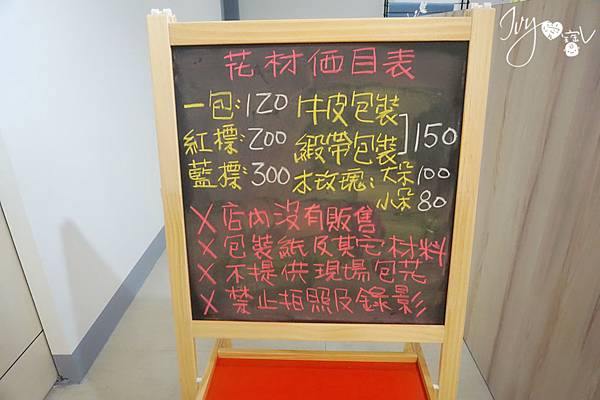 花材価目表
一包:120
紅標:200
藍標:300
牛皮包裝
緞帶包裝
]150
本玫瑰:大朵100
小朵80
X店內沒有販售
X包裝紙及其它材料
X不提供現場包花
X禁止拍照及錄影
Ivy